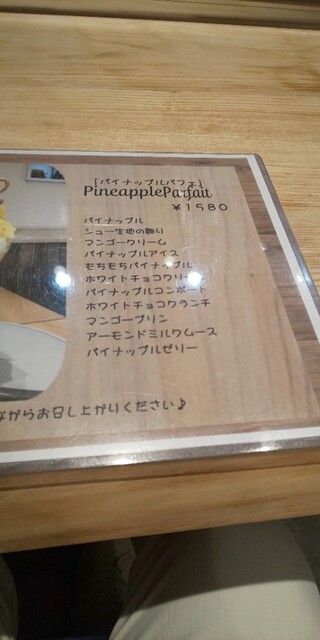 「パイナップルパフェ」
PineappleParfait
¥1580
パイナップル
シュー生地の飾り
マンゴークリーム
パイナップルアイス
もちもちパイナップル
ホワイトチョコクリーム
パイナップルコンポート
ホワイトチョコクランチ
マンゴープリン
アーモンドミルクムース
パイナップルゼリー
ながらお召し上がりください♪